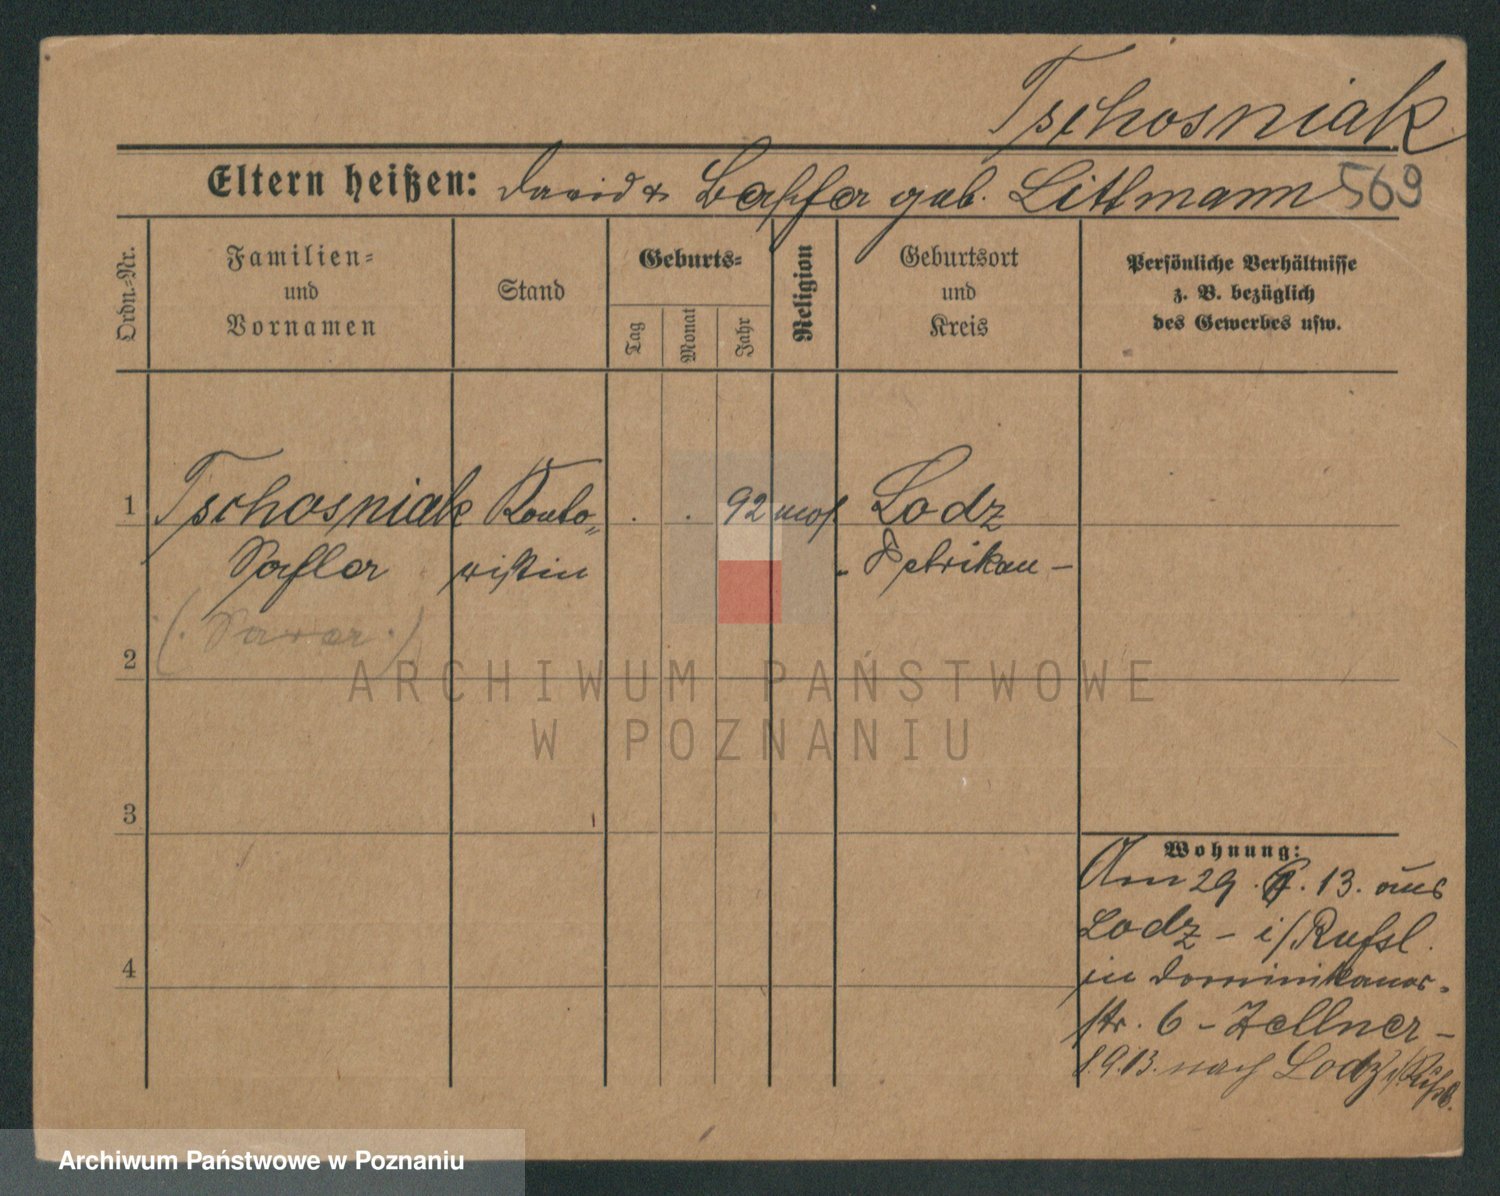 Tschosniak
Eltern heißen: David & Baschfa geb. Littmann 569
Ordn.-Nr.
Familien- und Vornamen
Stand
Geburts-
Tag
Monat
Jahr
Religion
Geburtsort und Kreis
Persönliche Verhältnisse
z. B. bezüglich
des Gewerbes usw.
1 Tschosniak Konto- . . 92 mos. Lodz
ristin - Petrikau -
2
3
4
Wohnung:
Am 29. . 13. aus
Lodz - i/Rußl.
in Dominikaner-
str. 6 - Zellner -
1.9.13. nach Lodz i/Rußl.
ARCHIWUM PAŃSTWOWE
W POZNANIU
Archiwum Państwowe w Poznaniu